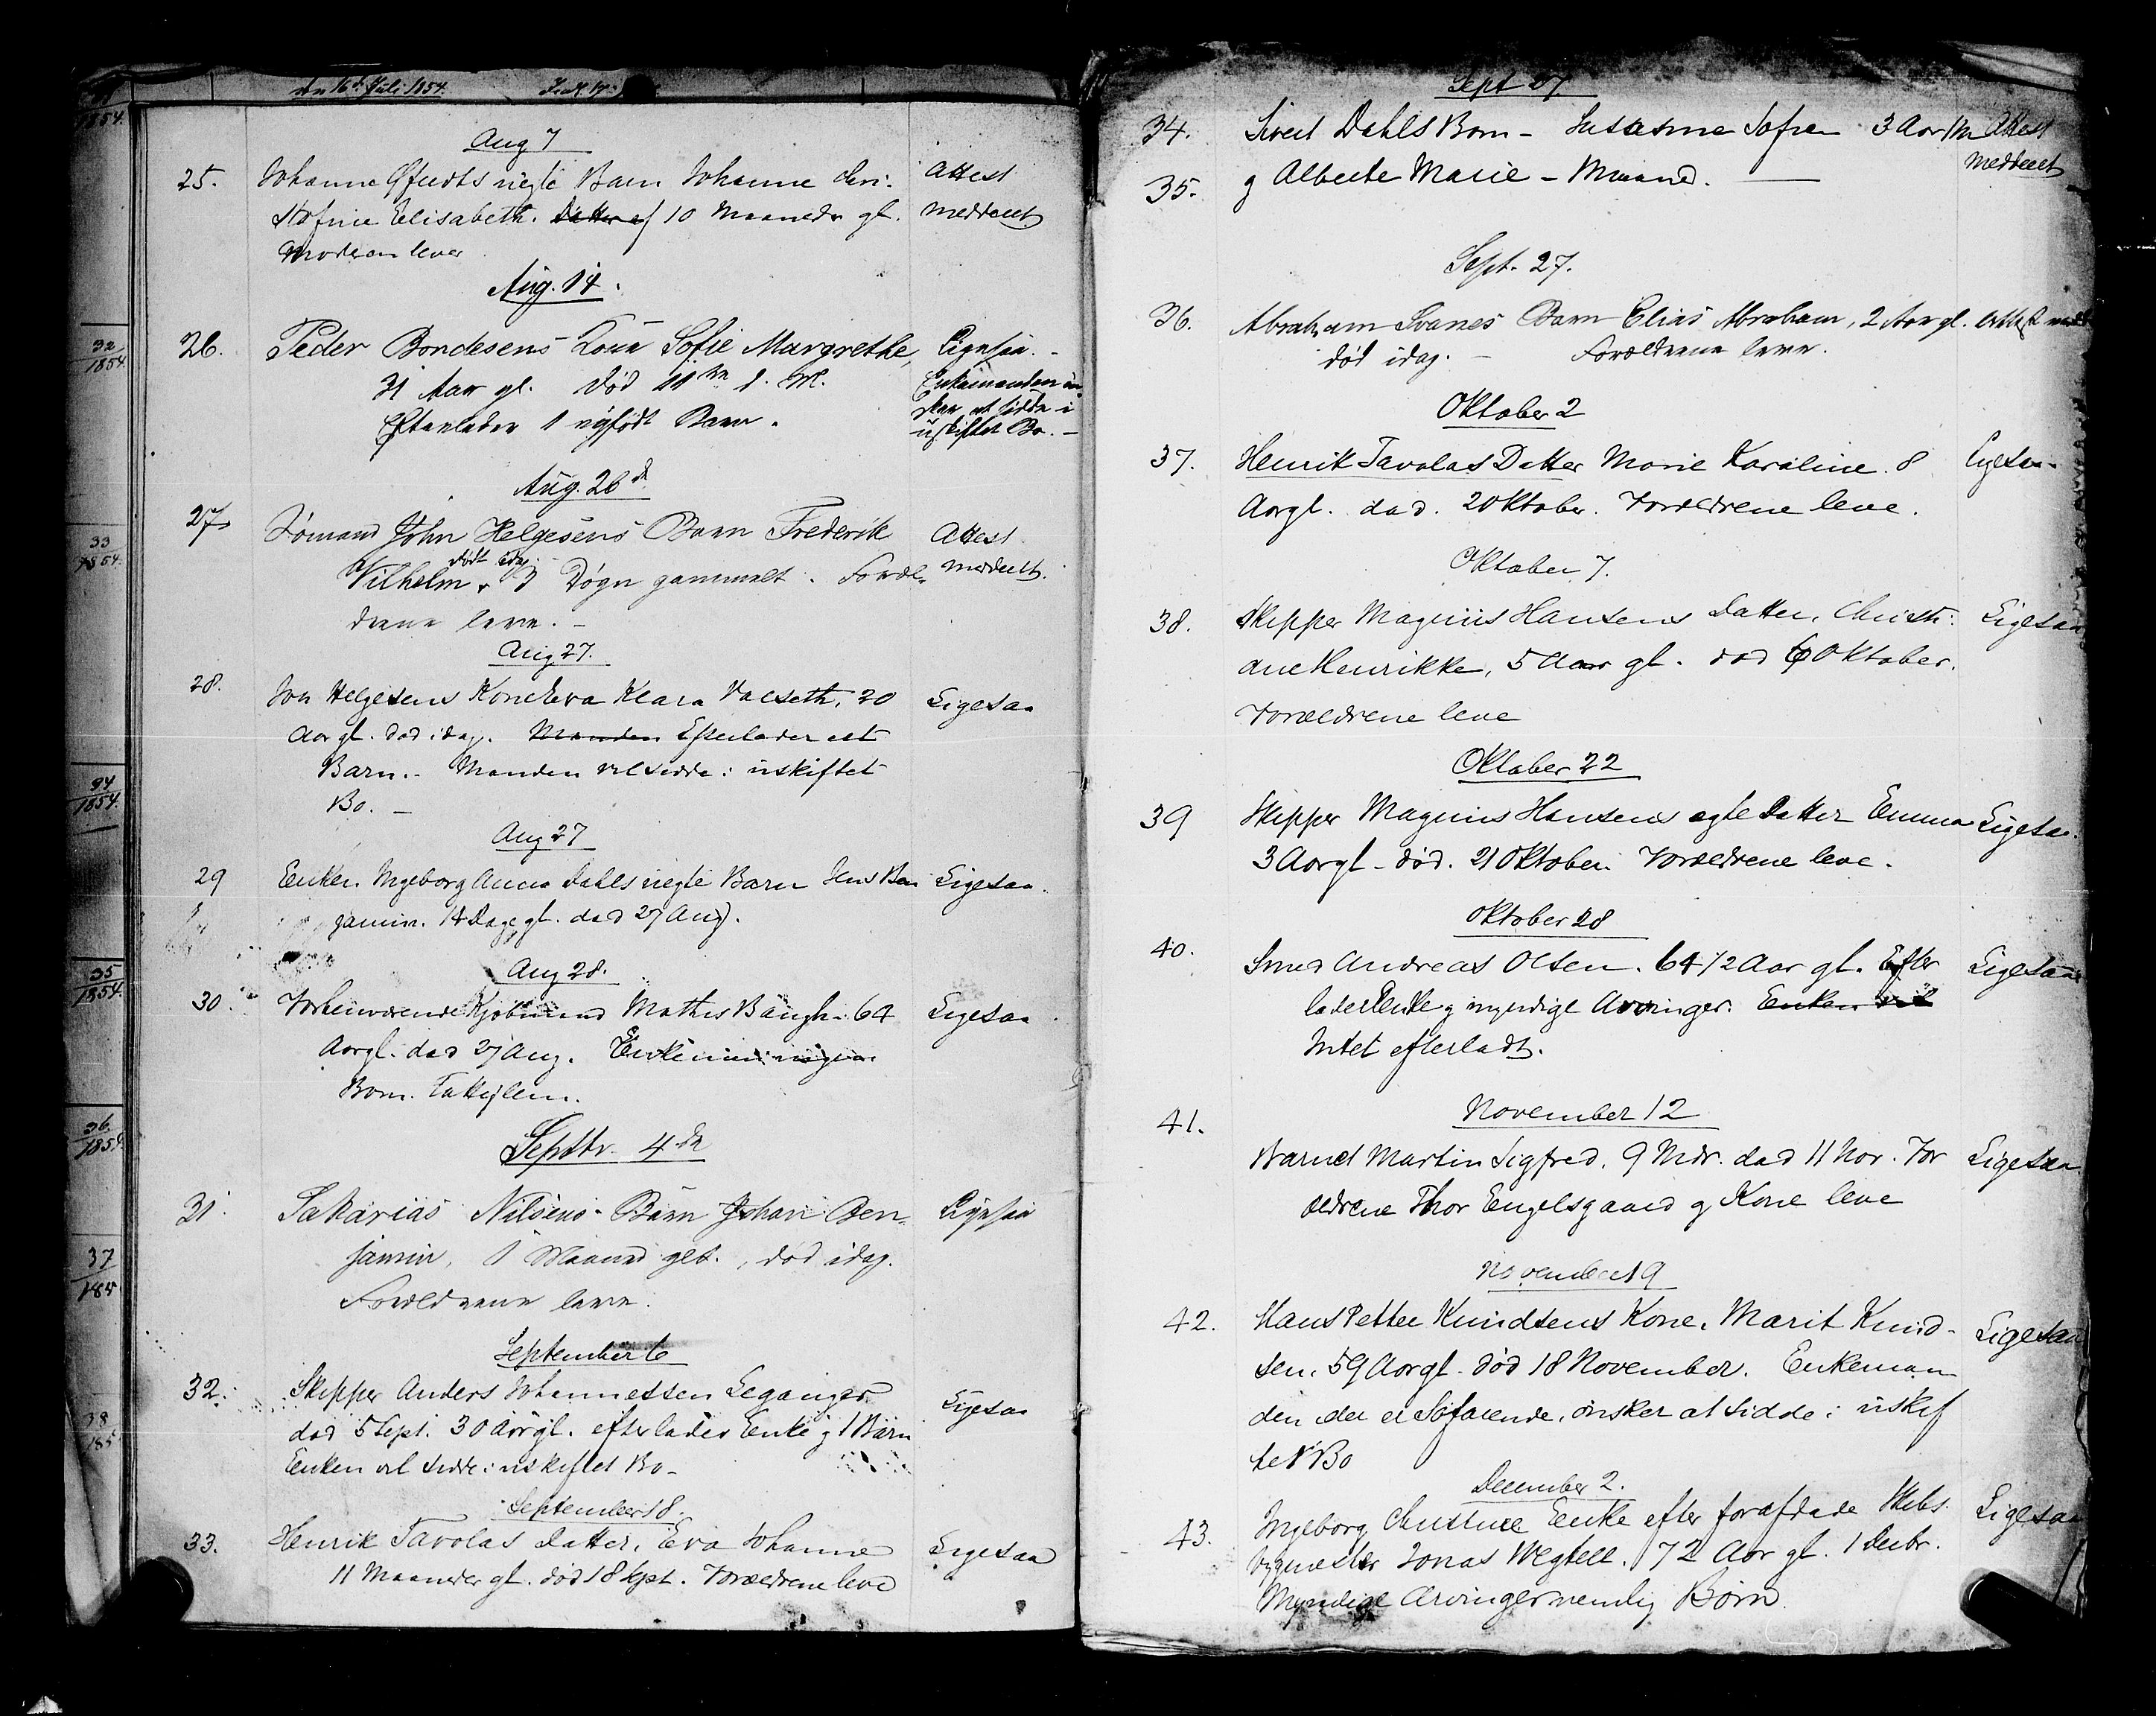 den 16de Juli 1854.
1854.
Aug 7
25. Johanne uegte Barn Johanne Chri- Attest
stofine Elisabeth. Datter af 10 Maaneder gl. meddeelt
Moderen lever
Aug. 14.
32
1854.
26. Peder Bondesens Kone Sofie Margrethe, Ligesaa. -
31 Aar gl. død 11te d. M. Enkemanden øn-
Efterlader 1 nyfødt Barn. sker at sidde i
uskiftet Bo. -
Aug. 26de
33
1854.
27 Sømand John Helgesens Barn Frederik Attest
dødt idag
Vilhelm, 3 Døgn gammelt. Foræl- meddeelt.
drene leve. -
Aug 27.
28. Jon Helgesens Kone Eva Klara Valseth, 20 Ligesaa
Aar gl. død idag. Manden Efterlader eet
Barn. - Manden vil sidde i uskiftet
Bo. -
34
1854.
Aug 27
29 Enken Ingeborg Anna Dahls uegte Barn Jens Ben Ligesaa.
jamin. 14 Dage gl. død 27 Aug.
Aug 28.
35
1854.
30. Forhenværende Kjøbmand Mathis Baugh. 64 Ligesaa
Aar gl. død 27 Aug.
Born. Fattiglem.
Septbr. 4de
36.
1854.
31. Sakarias Nilsens Barn Johan Ben- Ligesaa
jamin, 1 Maaned glt., død idag.
Forældrene leve.
37
185
September 6
32. Skipper Anders Johannessen Leganger Ligesaa
død 5 Sept. 30 Aar gl. efterlader Enke g 1 Barn
Enken vil sidde i uskiftet Bo -
38
185
September 18.
33. Henrik Tavolas Datter, Eva Johanne Ligesaa
11 Maaneder gl. død 18 Sept. Forældrene leve
Sept 27.
34. Sivert Dahls Born - Susanne Sofie 3 Aar Attest
35. g Alberte Marie - Maaned. meddeelt
Sept. 27.
36. Abraham Svanes Barn Elias Abraham, 2 Aar gl. Attest
død idag. - Forældrene leve.
Oktober 2
37. Henrik Tavolas Datter Marie Karoline. 8 Ligesaa
Aar gl. død. 2 Oktober. Forældrene leve.
Oktober 7.
38. Skipper Magnus Hansens Datter, Christi- Ligesaa
ane Henrikke, 5 Aar gl. død 6 Oktober.
Forældrene leve
Oktober 22
39 Skipper Magnus Hansens egte Datter Emma Ligesaa.
3 Aar gl - død. 21 Oktober. Forældrene leve.
Oktober 28
40. Smed Andreas Olsen. 64 1/2 Aar gl. Efter Ligesaa
lader Enke g myndige Arvinger. Enken vil
Intet efterladt.
November 12
41. Barnet Martin Sigfred. 9 Mdr. død 11 Nov. For Ligesaa
ældrene Thor Engelsgaard g Kone leve
November 19
42. Hans Petter Knudsens Kone, Marit Knud- Ligesaa
sen. 59 Aar gl. død 18 November. Enkeman
den, der er Søfarende, ønsker at sidde i uskif
tet Bo
December 2.
43. Ingeborg Christine Enke efter forafdøde Skibs- Ligesaa
bygmester Jonas Wegtell. 72 Aar gl. 1 Decbr.
Myndige Arvinger nemlig Børn.